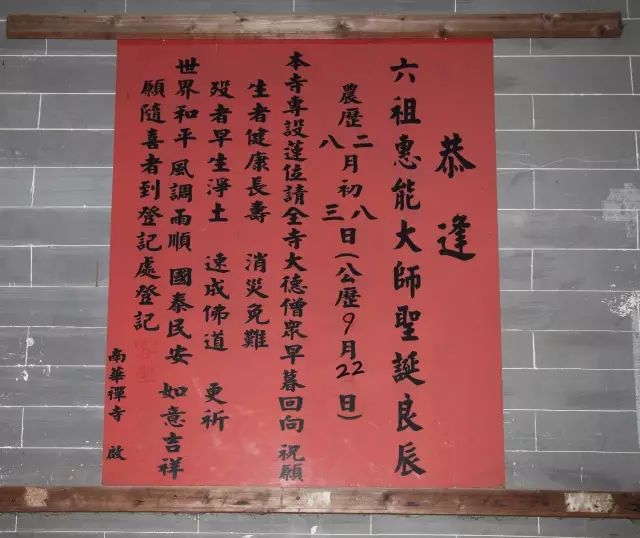 恭逢
六祖惠能大師聖誕良辰
農歷二八月初八三日(公歷9月22日)
本寺專設蓮位請全寺大德僧衆早暮回向 祝願
生者健康長壽 消災免難
歿者早生淨土 速成佛道 更祈
世界和平風調雨順 國泰民安 如意吉祥
願隨喜者到登記處登記
南華禪寺 啟